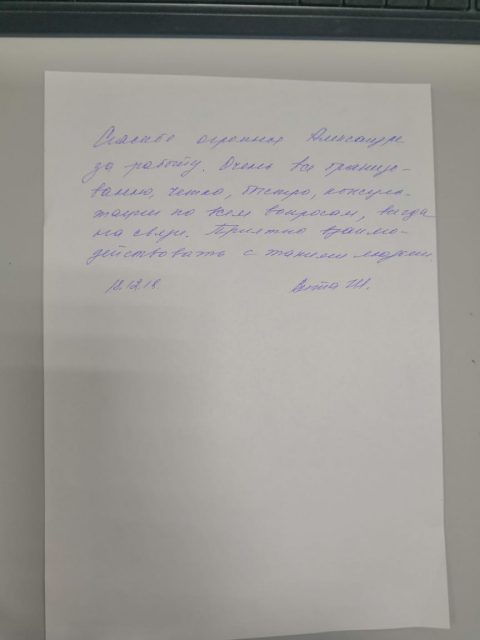 Спасибо огромное Александре
за работу. Очень все
ванно, четко, быстро, консуль-
тации по всем вопросам, всегда
на связи. Приятно взаимо-
действовать с такими людьми.
12.12.18 Ш.